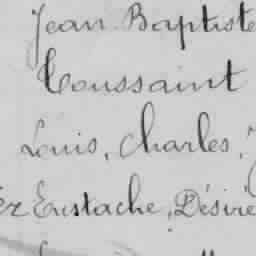 Jean Baptiste
Toussaint
Louis, Charles,
Eustache, Désiré